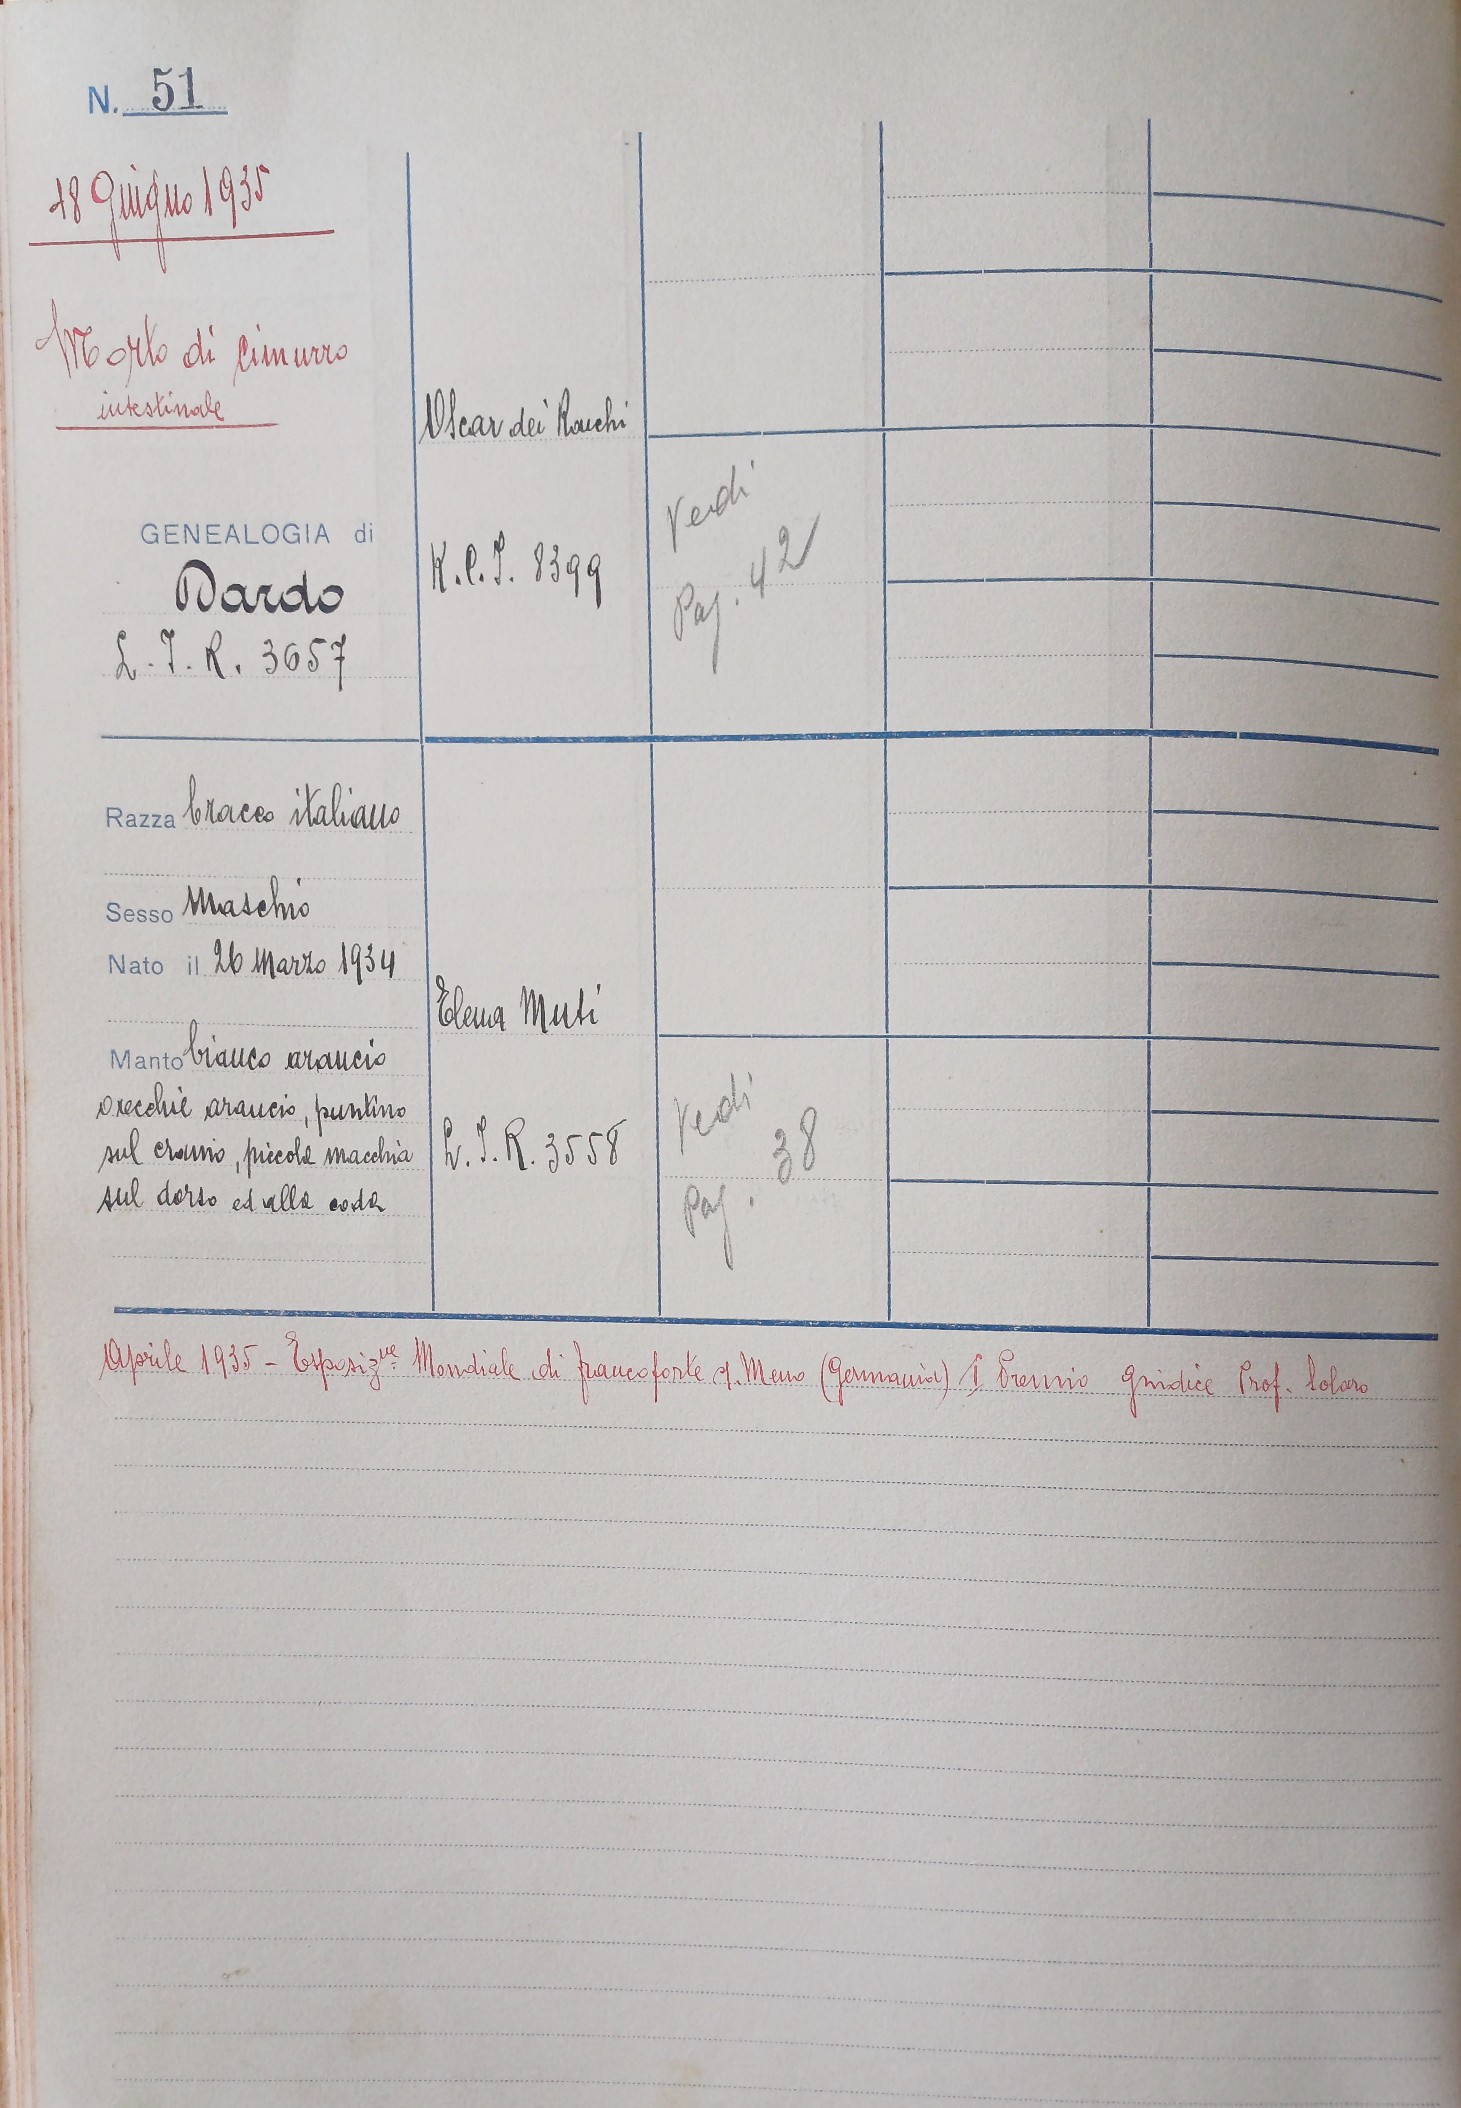 N. 51
18 Giugno 1935
Morto di cimurro
intestinale
GENEALOGIA di
Dardo
L.I.R. 3657
Razza bracco italiano
Sesso Maschio
Nato il 26 Marzo 1934
Manto bianco arancio
orecchie arancio, puntino
sul cranio, piccola macchia
sul dorso ed alla coda
Oscar dei Ronchi
K.C.I. 8399
Vedi
Pag. 42
Elena Muti
L.I.R. 3558
Vedi
Pag. 38
Aprile 1935 - Esposiz.ne Mondiale di Francoforte s. Meno (Germania) I Premio Giudice Prof. Solaro